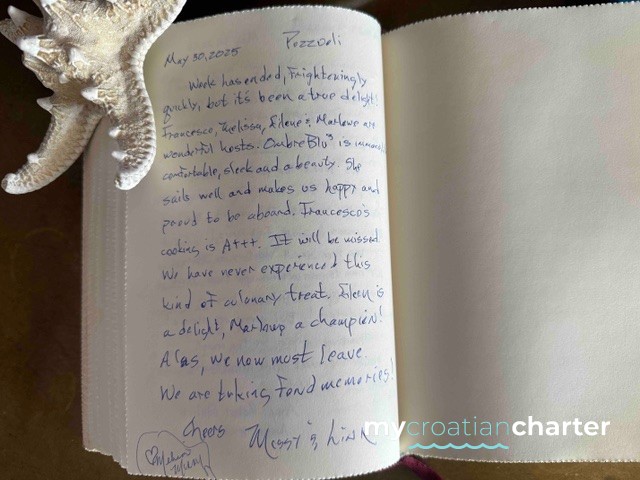 May 30, 2025 Pozzoli
Week has ended, Frighteningly
quickly, but it's been a true delight!
Francesco, Melissa, Eilene & Marlowe are
wonderful hosts. OmbreBlu³ is
comfortable, sleek and a beauty. She
sails well and makes us happy and
proud to be aboard. Francesco's
cooking is A+++. It will be missed
We have never experienced this
kind of culonary treat. Eileen is
a delight, Marlowe a champion!
Alas, we now most leave.
We are taking fond memories!
Cheers Missy & Link
mycroatiancharter